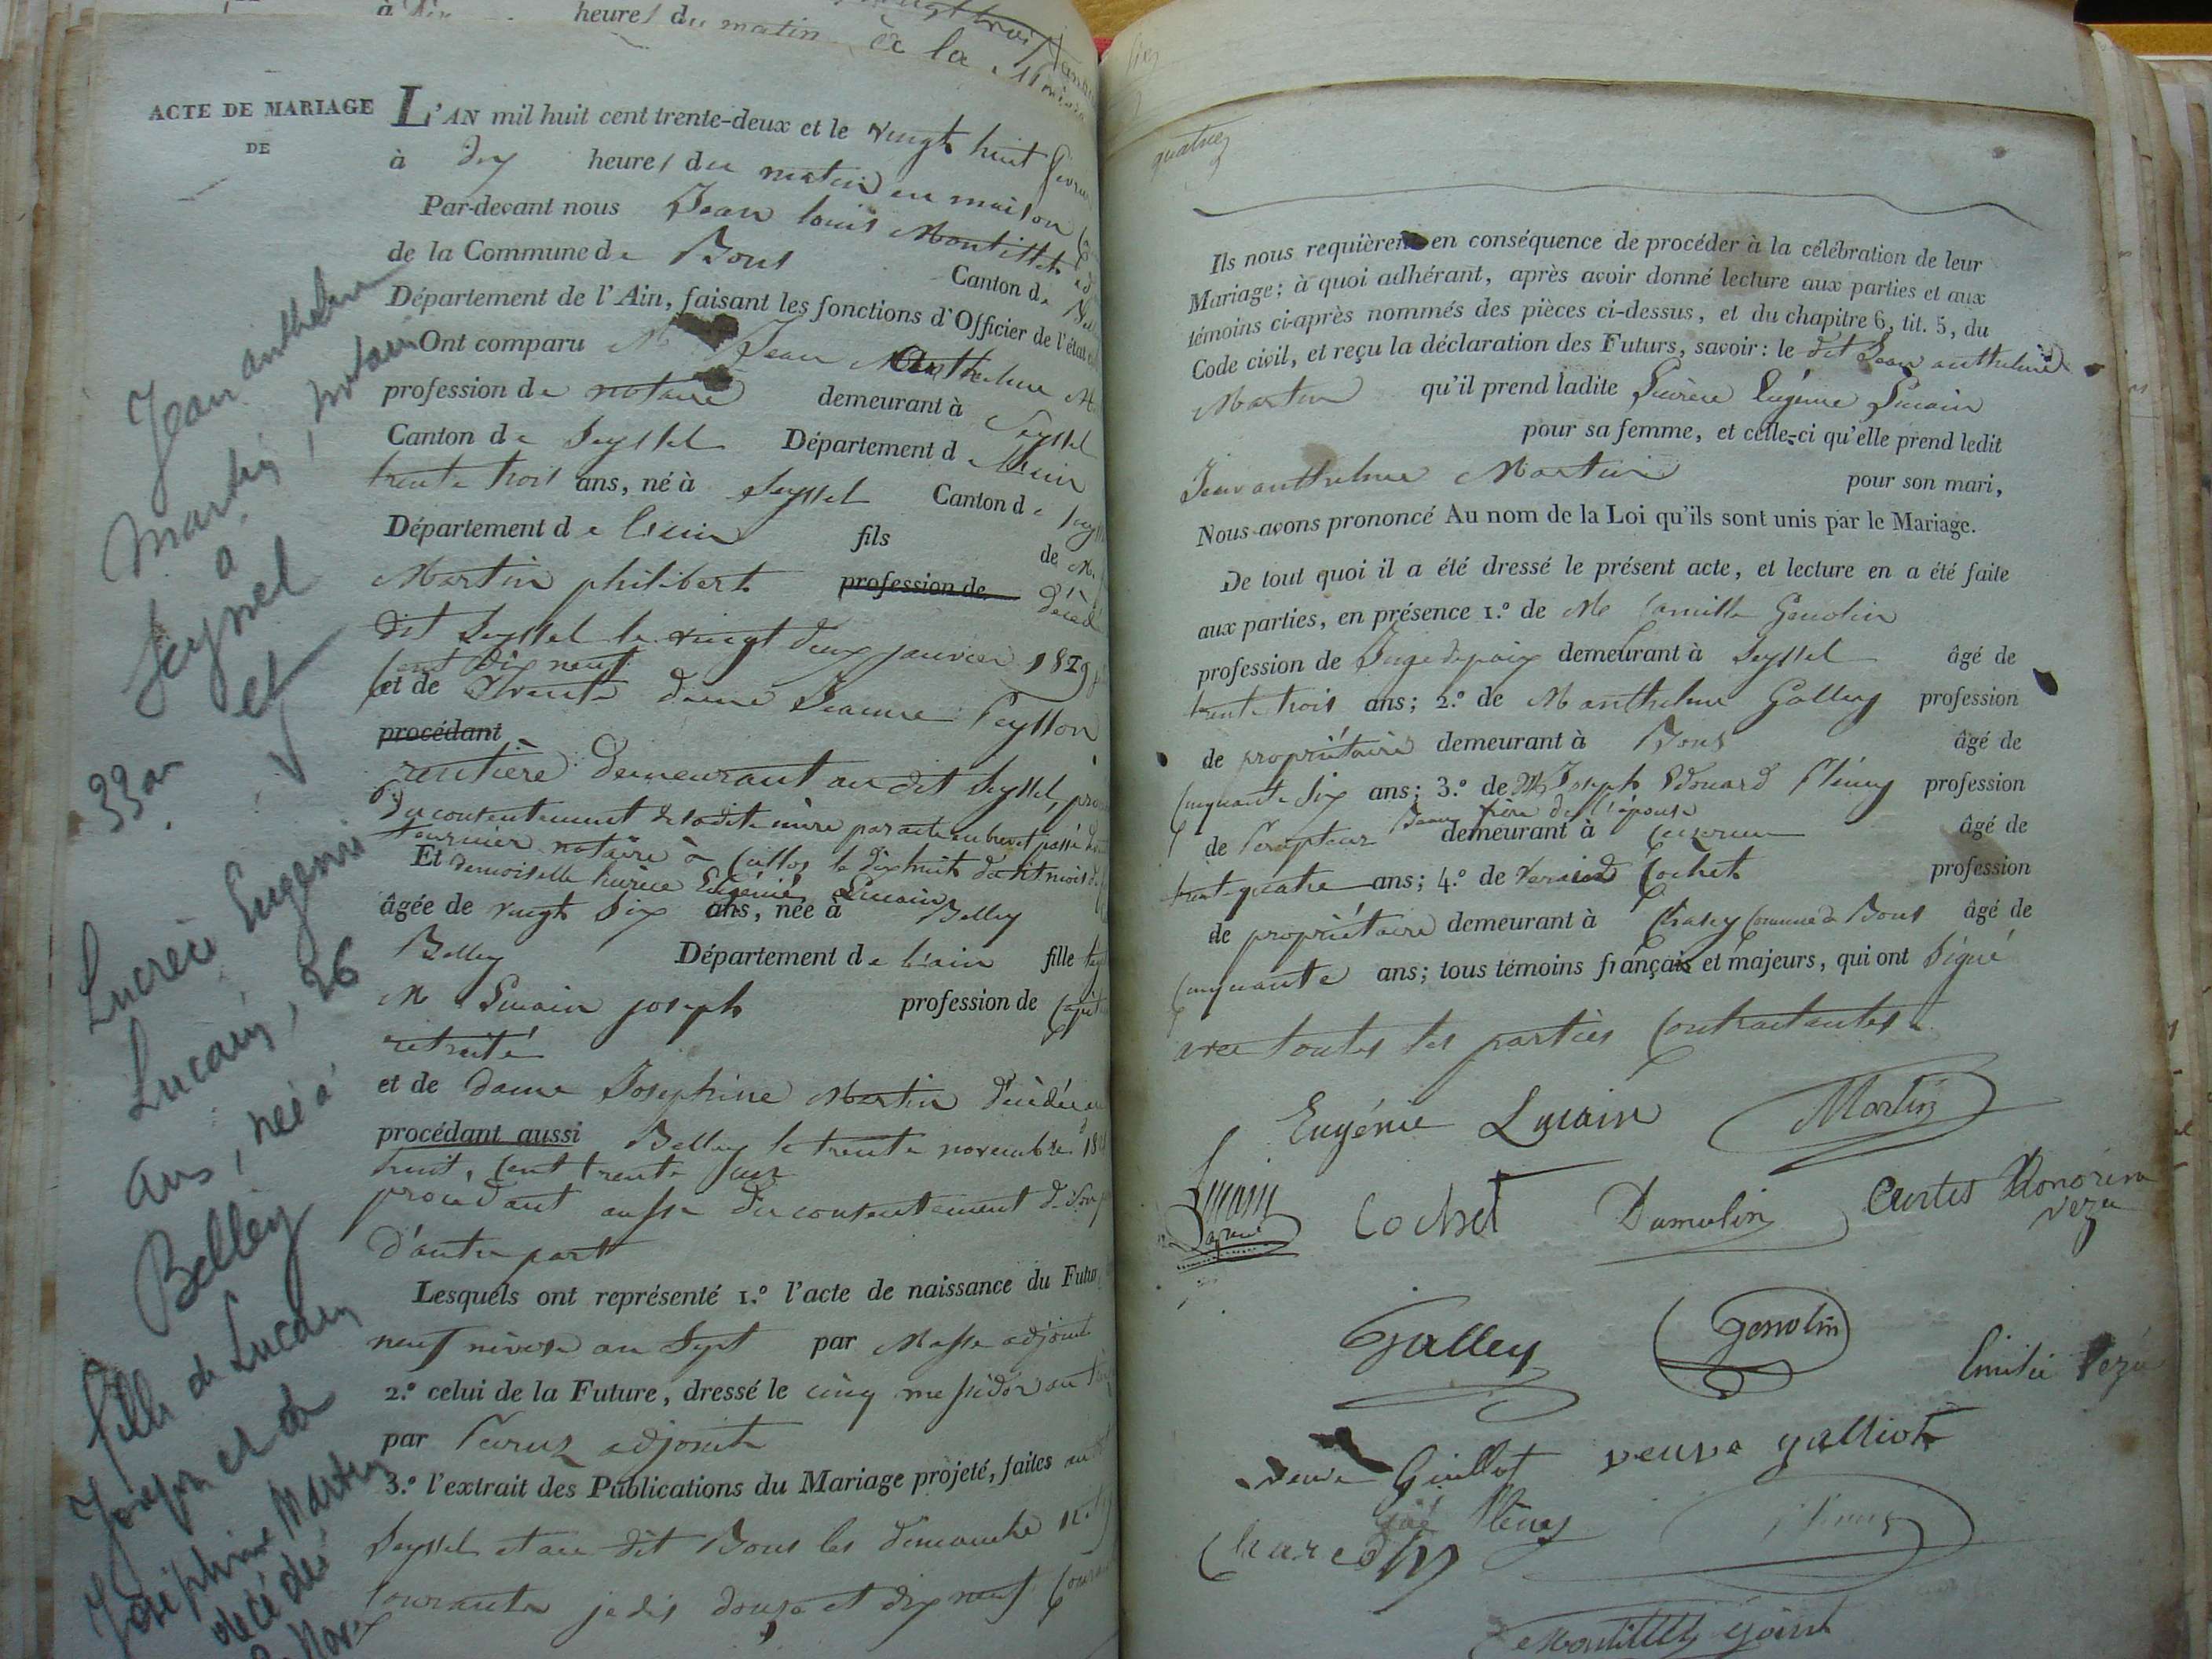 heures du matin
à la
ACTE DE MARIAGE
DE
Jean anthelme
Martin, notaire
à
Seyssel
33 an et
Lucrèce Eugenie
Lucain, 26
ans, née à
Belley
fille de Lucain
Joseph et de
Joséphine Martin
décédée
L'AN mil huit cent trente-deux et le vingt huit
à dix heures du matin en maison
Par-devant nous Jean louis Montillet
de la Commune de Bons Canton de
Département de l'Ain, faisant les fonctions d'Officier de l'état
Ont comparu Mr Jean Anthelme
profession de notaire demeurant à Seyssel
Canton de Seyssel Département de l'ain
trente trois ans, né à Seyssel Canton de
Département de l'ain fils de M.
Martin philibert profession de
dit Seyssel le vingt deux janvier 1829
cent dix neuf
et de dame Jeanne Peysson
procédant
rentière demeurant au dit Seyssel,
du contentement de sadite mère par acte en brevet passé
notaire à Culloz le dix huit du dit mois
Et demoiselle lucrèce Eugénie Lucain
âgée de vingt six ans, née à Belley
Belley Département de l'ain fille
M Lucain joseph profession de
retraité
et de dame Josephine Martin décédée
procédant aussi Belley le trente novembre
huit, cent trente
procédant aussi du contentement de son
d'autre part
Lesquels ont représenté 1.º l'acte de naissance du
neuf nivose an Sept par Masse adjoint
2.º celui de la Future, dressé le cinq messidor an
par adjoint
3.º l'extrait des Publications du Mariage projeté, faites au
Seyssel et au dit Bons les dimanche
courante jedis douze et dix neuf
quatre
Ils nous requièrent en conséquence de procéder à la célébration de leur
Mariage; à quoi adhérant, après avoir donné lecture aux parties et aux
témoins ci-après nommés des pièces ci-dessus, et du chapitre 6, tit. 5, du
Code civil, et reçu la déclaration des Futurs, savoir: le dit Jean anthelme
Martin qu'il prend ladite Lucrèce Eugénie Lucain
pour sa femme, et celle-ci qu'elle prend ledit
Jean anthelme Martin pour son mari,
Nous avons prononcé Au nom de la Loi qu'ils sont unis par le Mariage.
De tout quoi il a été dressé le présent acte, et lecture en a été faite
aux parties, en présence 1.º de Mr Camille Genolin
profession de Juge de paix demeurant à Seyssel âgé de
trente trois ans; 2.º de M anthelme Galley profession
de propriétaire demeurant à Bons âgé de
Cinquante Six ans; 3.º de Mr Joseph Edouard Fléury profession
Beau frère de l'épouse
de Percepteur demeurant à âgé de
trente quatre ans; 4.º de Cochet profession
de propriétaire demeurant à Chazey Commune de Bons âgé de
Cinquante ans; tous témoins français et majeurs, qui ont Signé
avec toutes les parties Contractantes
Eugénie Lucain Martin
Lucain Cochet Dumolin Curtet Honorina
Vezu
Galley Genolin
Emilie Vezu
veuve Guillot veuve galliot
Fléury
Montillet adjoint